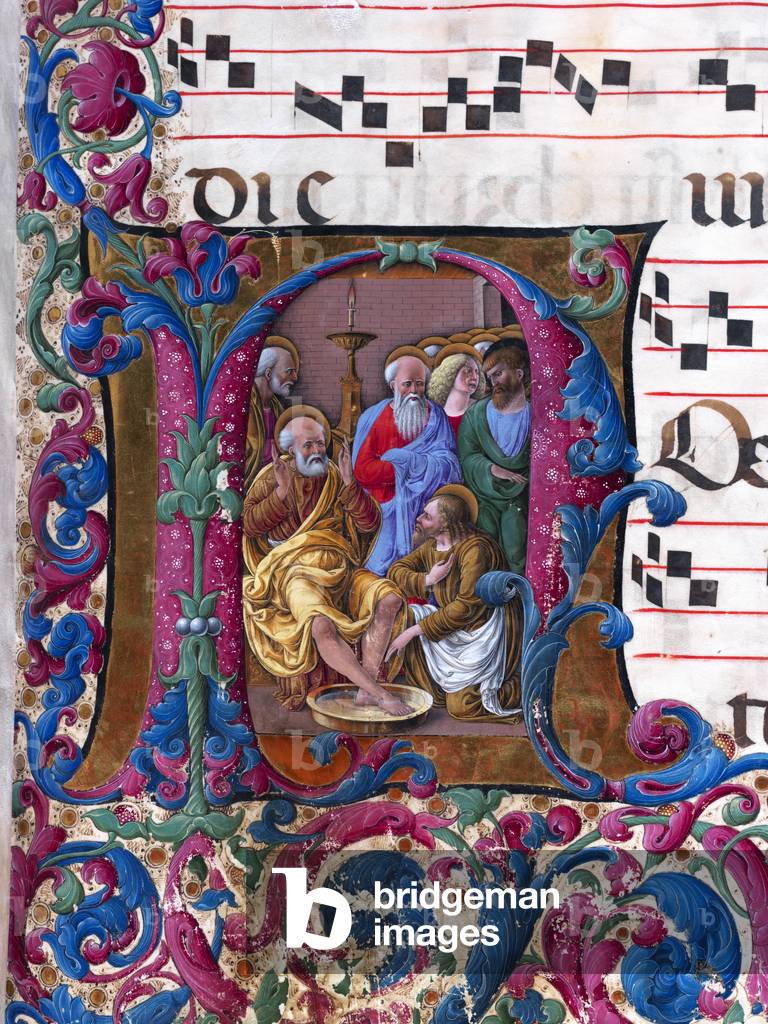 dic
De
b bridgeman
images